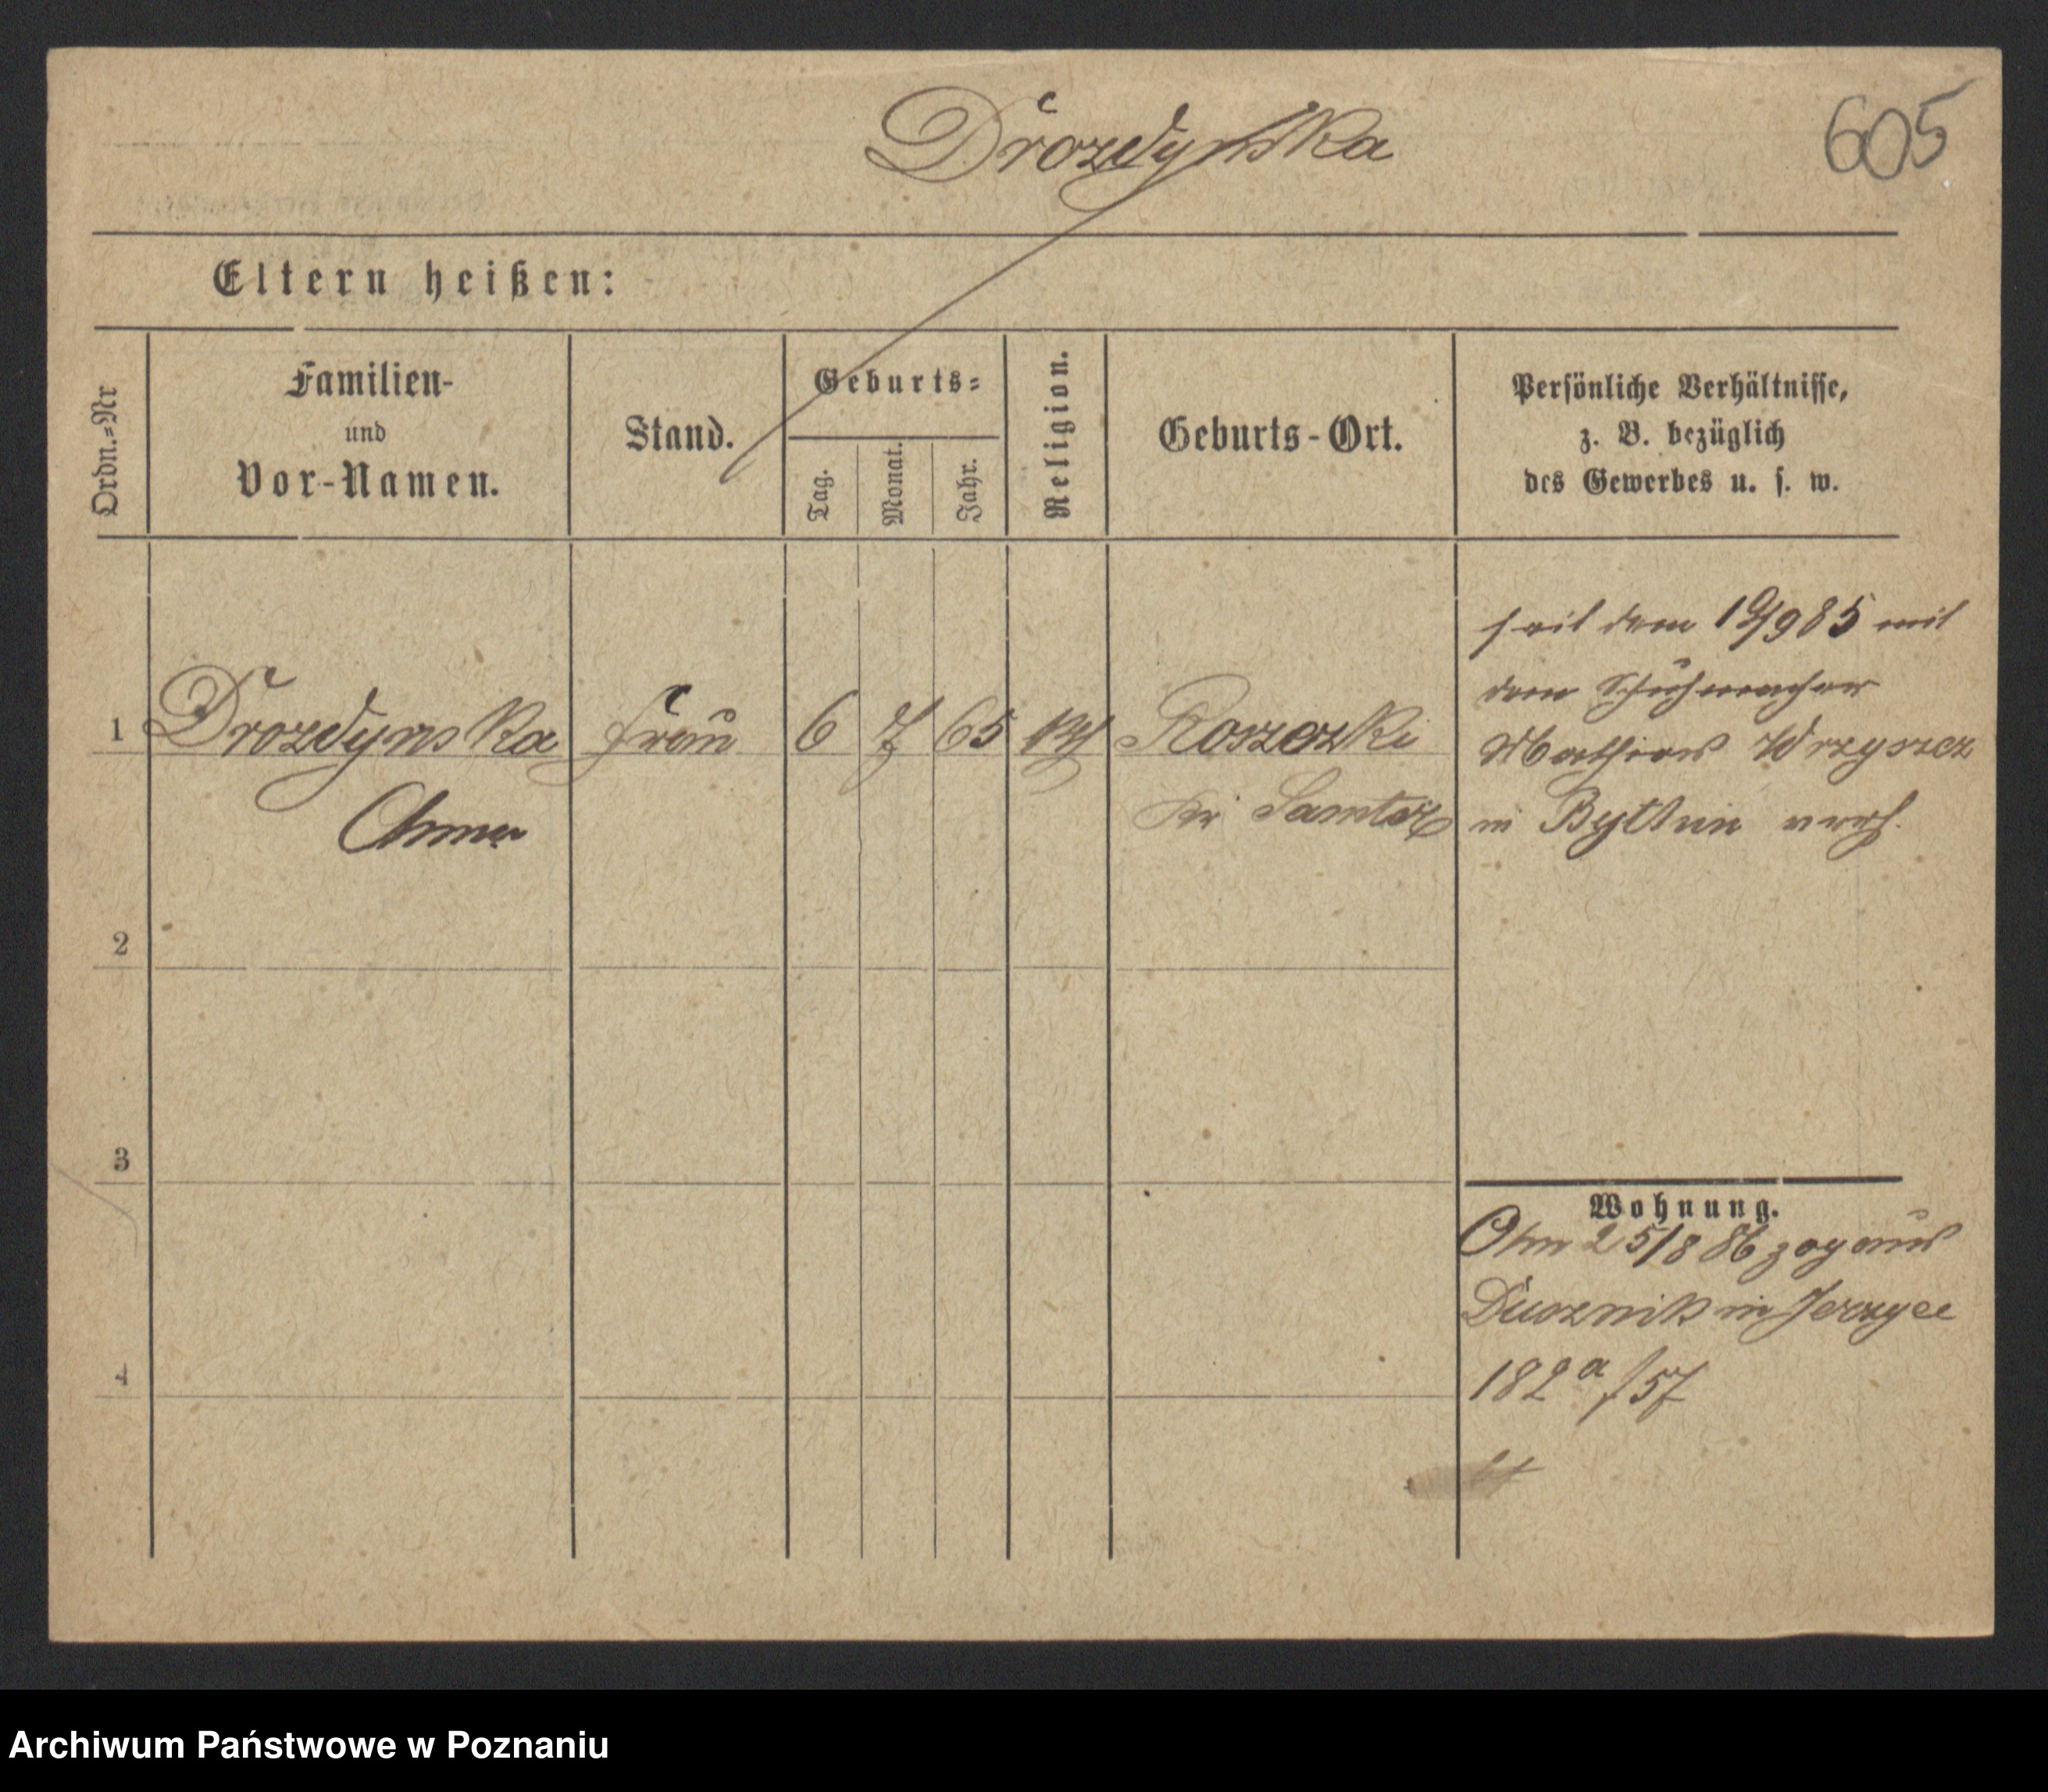 Drozdynska
605
Eltern heißen:
Ordn.=Nr
Familien-
und
Vor-Namen.
Stand.
Geburts=
Tag.
Monat.
Jahr.
Religion.
Geburts-Ort.
Persönliche Verhältnisse,
z. B. bezüglich
des Gewerbes u. s. w.
1
Drozdynska
Anna
Frau
6
7
65
Koszozki
Kr Samter
seit dem 19/9 85 mit
dem Schuhmacher
Mathias Wrzyszcz
in Bythin verh.
2
3
4
Wohnung.
Am 25/8 86 zog aus
Dusznik in Jerzyce
182a/57
Archiwum Państwowe w Poznaniu